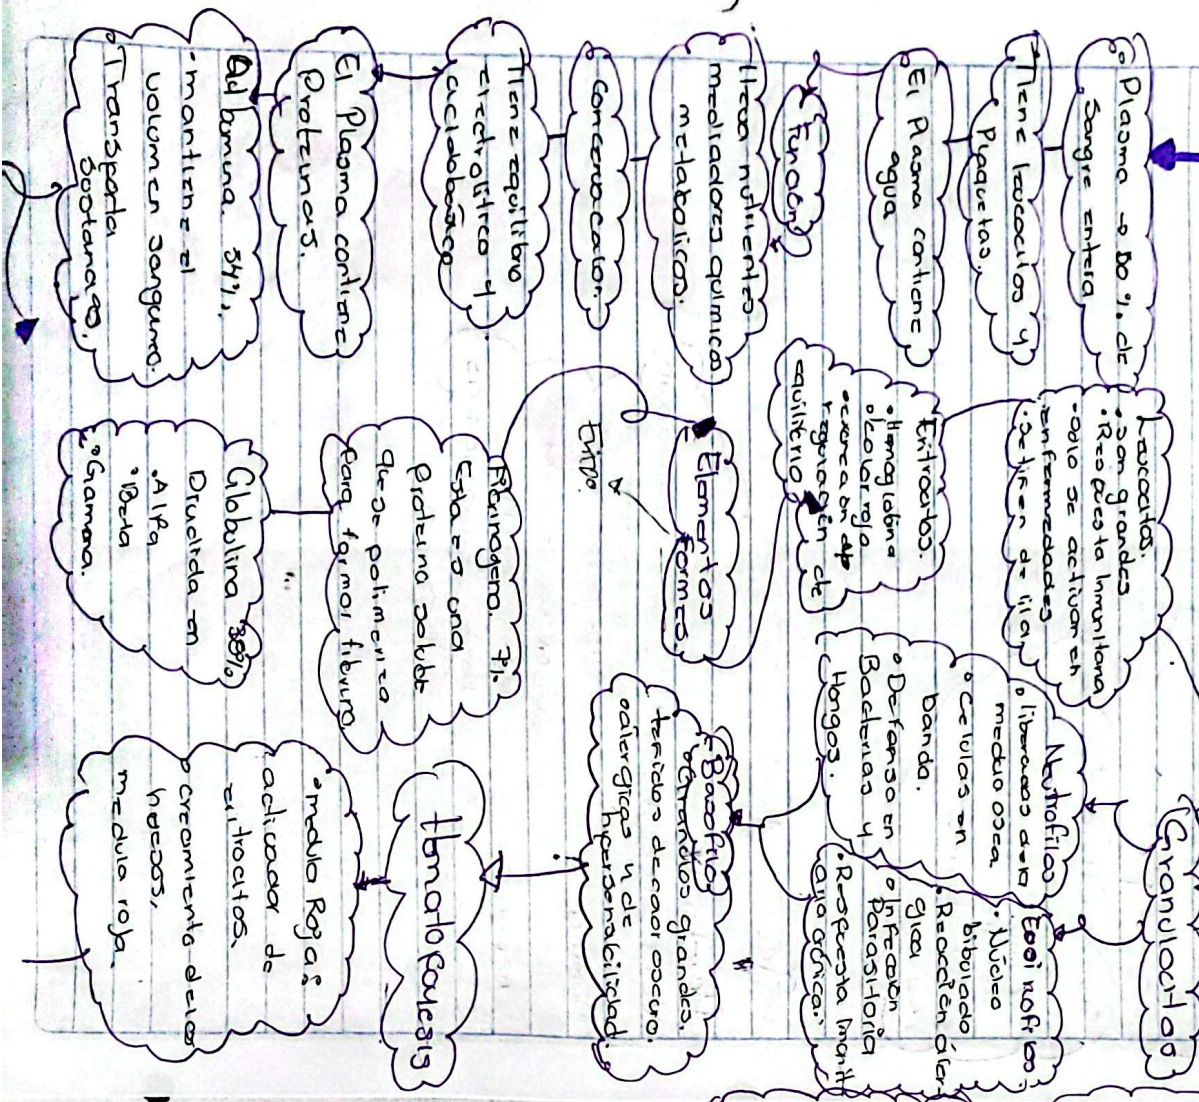 Plasma → 80 % de
sangre entera
Tiene leucocitos y
Plaquetas.
El Plasma contiene
agua
Función
lleva nutrientes
mediadores químicos
metabolicos.
Conserva calor.
Tiene equilibrio
electrolitico y
acidobásico
El Plasma contiene
Proteinas.
Albumina. 54%.
• mantiene el
volumen sanguino.
• Transporta
sustancias.
Leucocitos.
• Son grandes
• Respuesta Inmunitaria
• solo se activan en
enfermedades
• se tiñen de lila.
Eritrocitos.
• Hemoglobina
• color rojo
• corrección de
regulación de
equilibrio
Elementos
formes.
Fibrinogeno. 7%
Esta es una
Proteina soluble
que se polimeriza
para formar fibrina.
Globulina 38%
Divídida en
• Alfa
• Beta
• Gamma.
Granulocitos
Neutrofilos
• liberados de la
medula osea
• Celulas en
banda.
• Defensa en
Bacterias y
Hongos.
Eosinofilos.
• Núcleo
bibulado
• Reacción alér-
gica
• Infección
Parasitaria
• Respuesta inmunit
aria crónica.
Basofilos
• Granulos grandes.
teñidos de color oscuro.
• alergicas y de
hipersensibilidad.
Hematopoyesis
• medula Roja
activador de
eritrocitos.
• crecimiento de los
huesos,
medula roja.